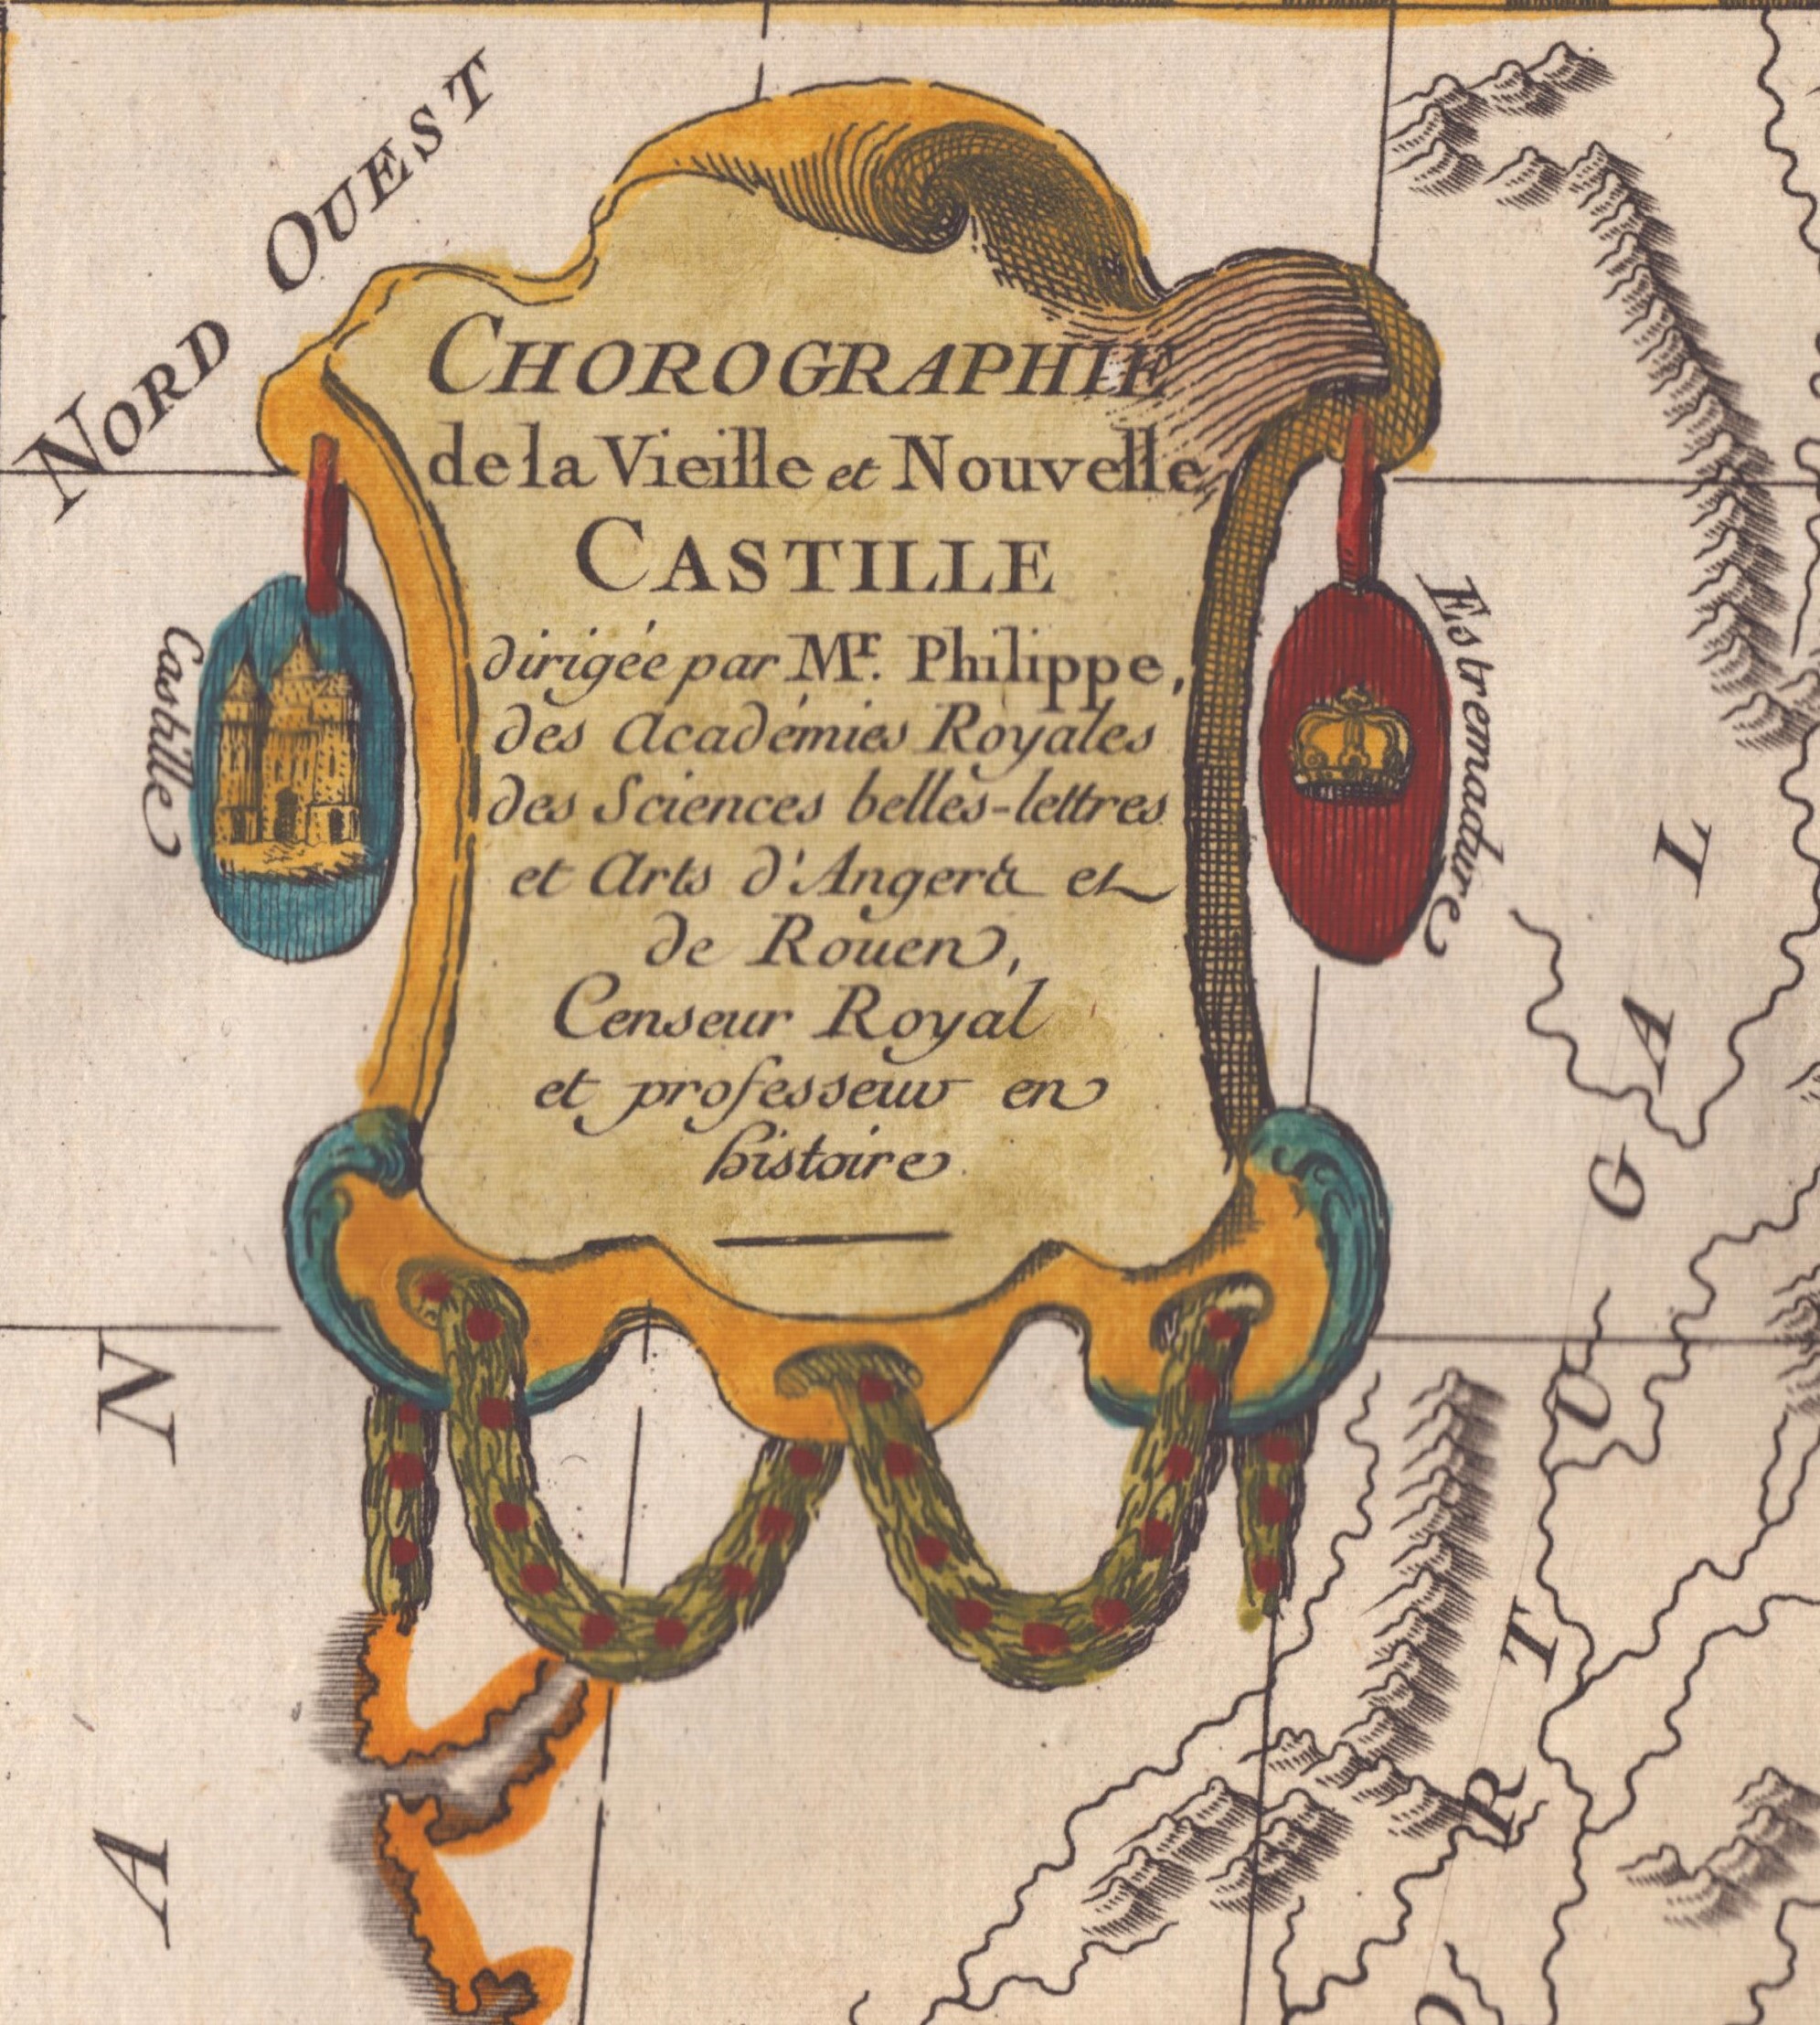 NORD OUEST
CHOROGRAPHIE
de la Vieille et Nouvelle
CASTILLE
dirigée par Mr. Philippe,
des Académies Royales
des Sciences belles-lettres
et Arts d'Angers et
de Rouen,
Censeur Royal
et professeur en
histoire
Castille
Estremadure
AN
ORTUGAL